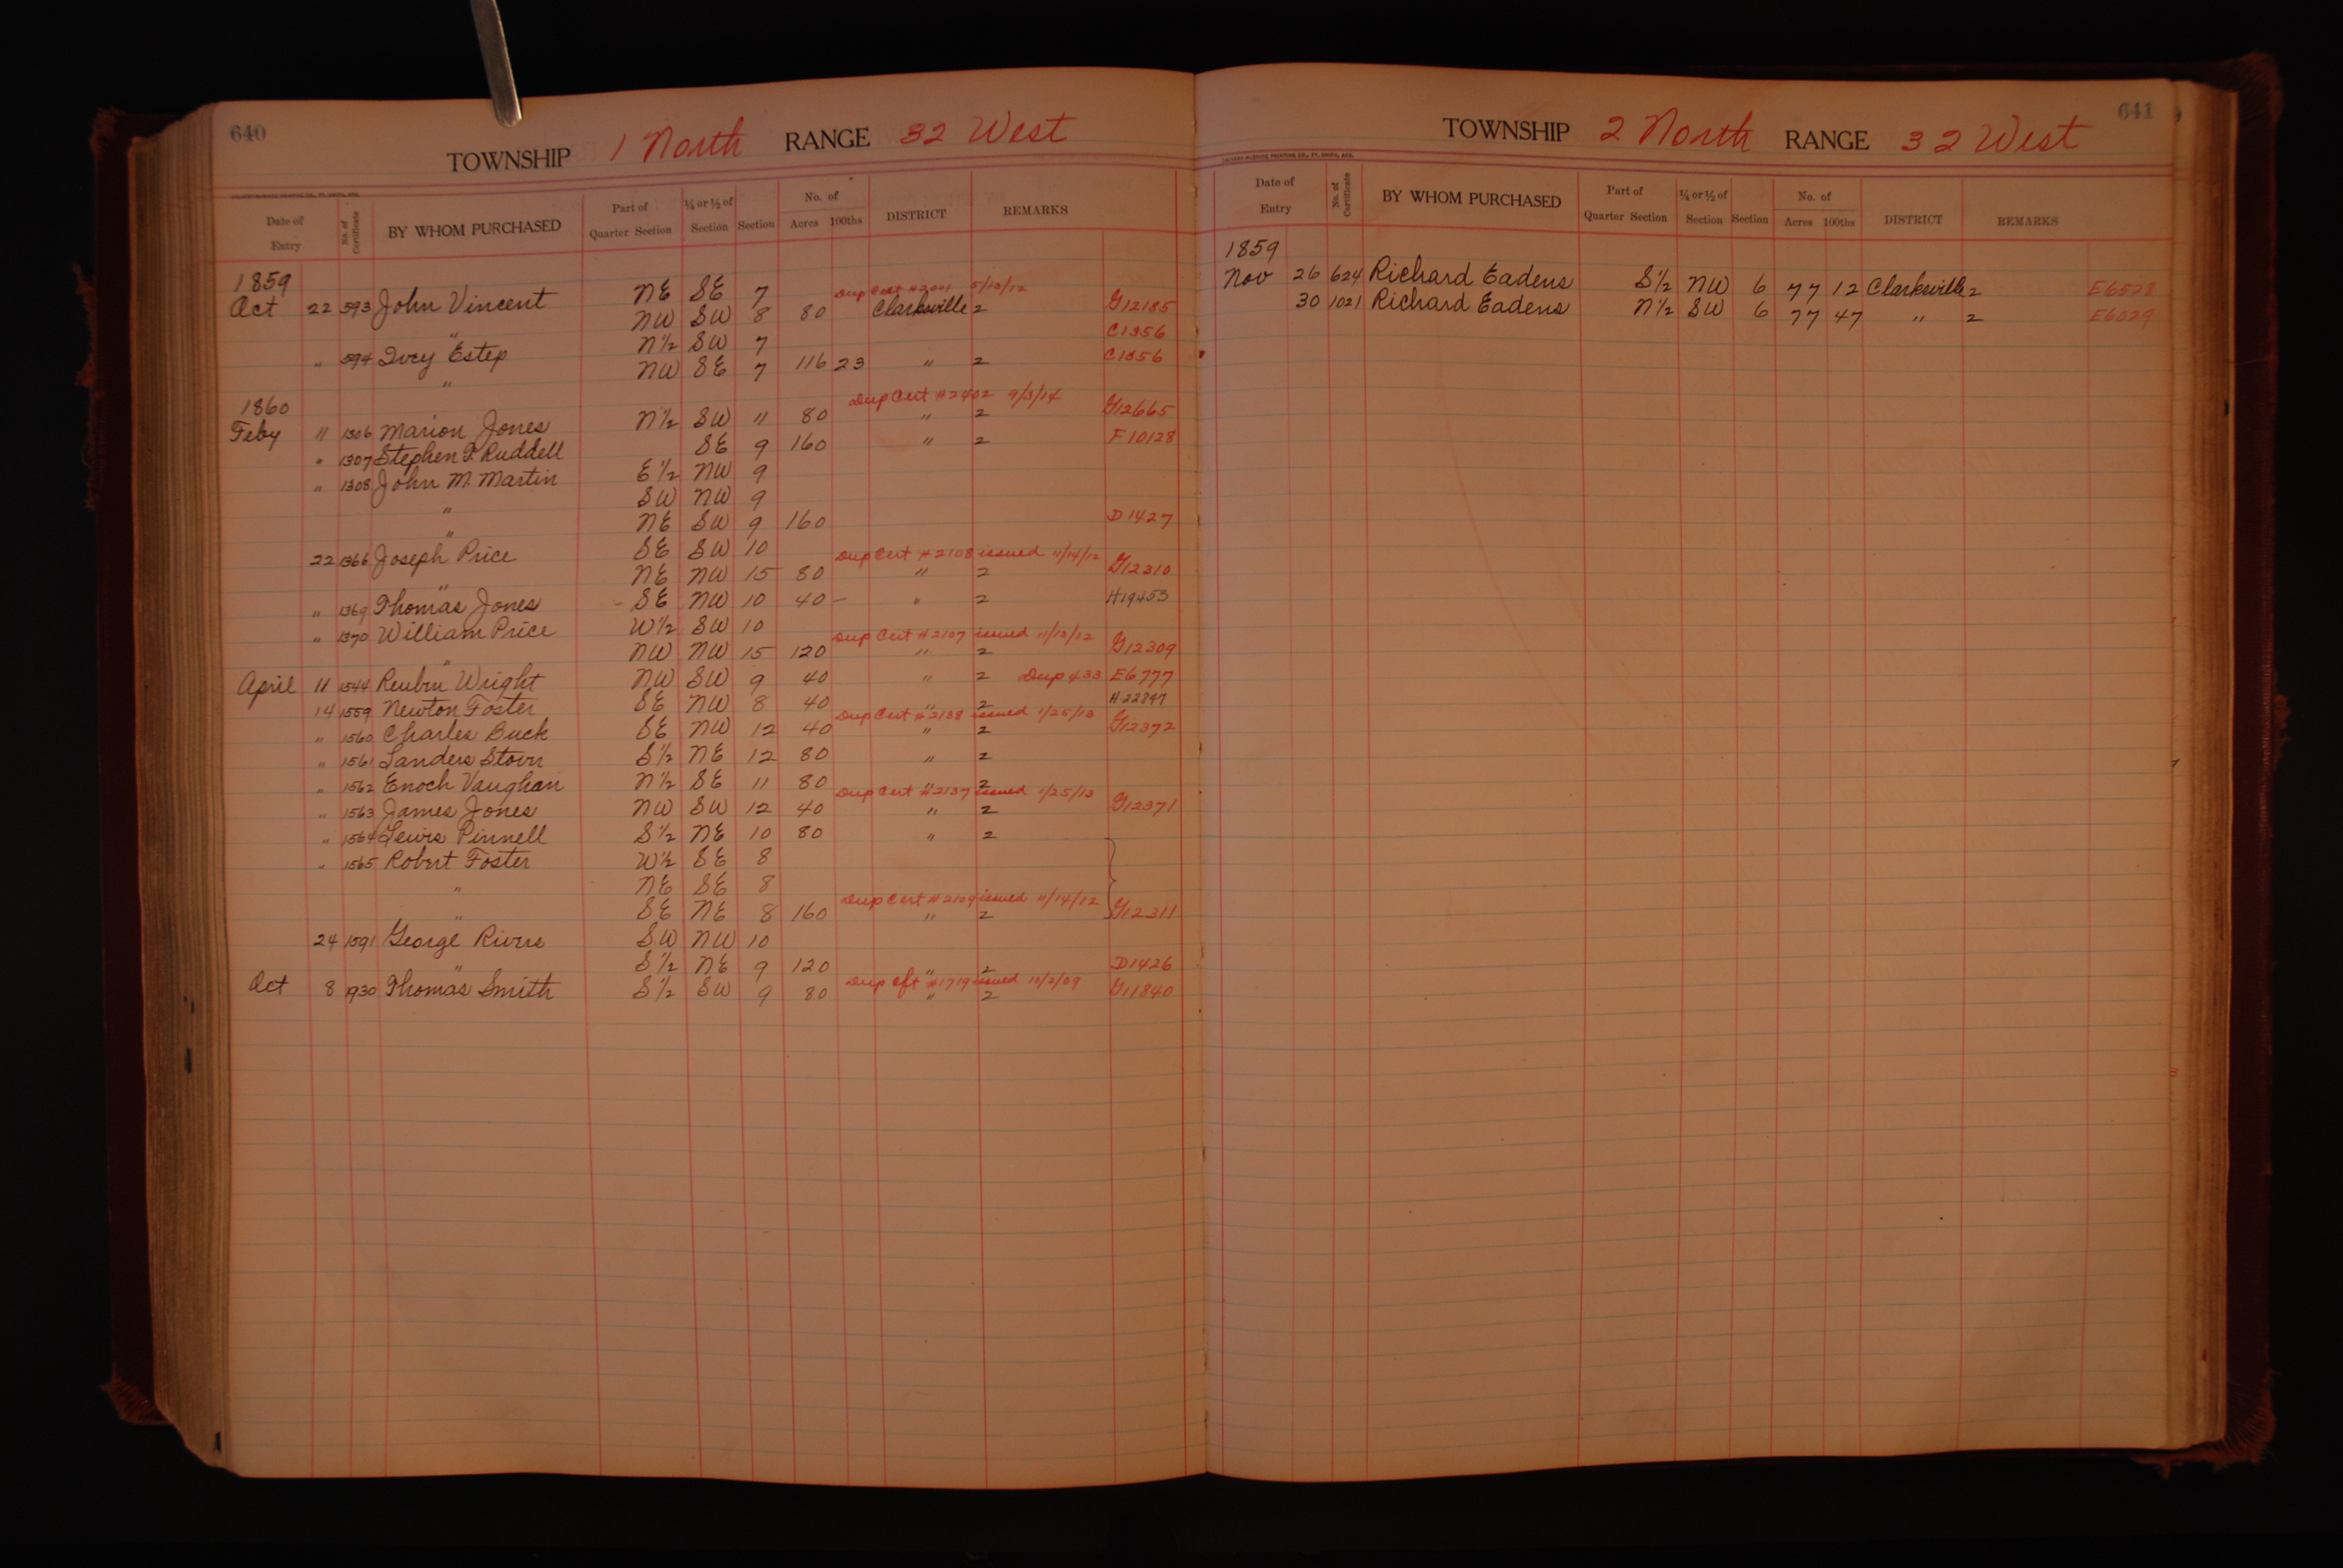 640
TOWNSHIP 1 North RANGE 32 West
Date of Entry No. of Certificate BY WHOM PURCHASED Part of Quarter Section ¼ or ½ of Section Section No. of Acres 100ths DISTRICT REMARKS
1859
Dup Cert #2001 5/13/12
Oct 22 593 John Vincent NE SE 7
" NW SW 8 80 Clarksville 2 G12185
" 594 Ivey Estep N½ SW 7 C1356
" NW SE 7 116 23 " 2 C1356
1860
Dup Cert #2402 9/3/14
Feby 11 1306 Marion Jones N½ SW 11 80 " 2 G12665
" 1307 Stephen P. Ruddell SE 9 160 " 2 F10128
" 1308 John M. Martin E½ NW 9
" SW NW 9
" NE SW 9 160 D1427
22 1366 Joseph Price SE SW 10 Dup Cert #2108 issued 11/14/12
" NE NW 15 80 " 2 G12310
" 1369 Thomas Jones SE NW 10 40 — " 2 H19453
" 1370 William Price W½ SW 10 Dup Cert #2107 issued 11/13/12
" NW NW 15 120 " 2 G12309
April 11 1544 Reubin Wright NW SW 9 40 " 2 Dup 433 E6777
14 1559 Newton Foster SE NW 8 40 " 2 H22847
Dup Cert #2138 issued 1/25/13
" 1560 Charles Buck SE NW 12 40 " 2 G12372
" 1561 Sanders Stovr S½ NE 12 80 " 2
" 1562 Enoch Vaughan N½ SE 11 80 " 2
Dup Cert #2137 issued 1/25/13
" 1563 James Jones NW SW 12 40 " 2 G12371
" 1564 Lewis Pinnell S½ NE 10 80 " 2
" 1565 Robert Foster W½ SE 8
" NE SE 8
Dup Cert #2109 issued 11/14/12
" SE NE 8 160 " 2 G12311
24 1591 George Rivers SW NW 10
" S½ NE 9 120 " 2 D1426
Dup Cft #1719 issued 11/2/09
Oct 8 1930 Thomas Smith S½ SW 9 80 " 2 G11840
641
TOWNSHIP 2 North RANGE 32 West
Date of Entry No. of Certificate BY WHOM PURCHASED Part of Quarter Section ¼ or ½ of Section Section No. of Acres 100ths DISTRICT REMARKS
1859
Nov 26 624 Richard Eadens S½ NW 6 77 12 Clarksville 2 E6528
30 1021 Richard Eadens N½ SW 6 77 47 " 2 E6029